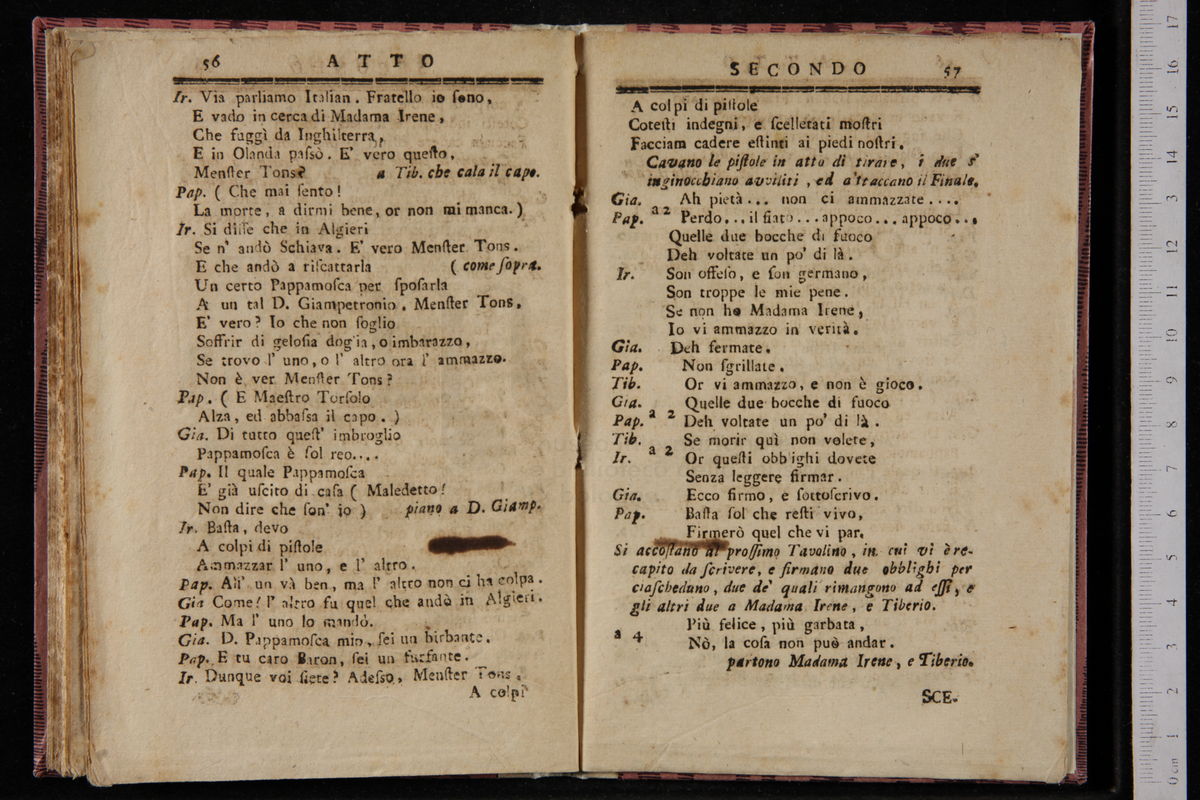 56 ATTO
Ir. Via parliamo Italian. Fratello io ſono,
E vado in cerca di Madama Irene,
Che fuggì da Inghilterra,
E in Olanda paſsò. E' vero queſto,
Menſter Tons? a Tib. che cala il capo.
Pap. ( Che mai ſento!
La morte, a dirmi bene, or non mi manca. )
Ir. Si diſſe che in Algieri
Se n' andò Schiava. E' vero Menſter Tons.
E che andò a riſcattarla ( come ſopra.
Un certo Pappamoſca per ſpoſarla
A un tal D. Giampetronio. Menſter Tons,
E' vero? Io che non ſoglio
Soffrir di geloſia doglia, o imbarazzo,
Se trovo l' uno, o l' altro ora l' ammazzo.
Non è ver Menſter Tons?
Pap. ( E Maeſtro Torſolo
Alza, ed abbaſsa il capo. )
Gia. Di tutto queſt' imbroglio
Pappamoſca è ſol reo....
Pap. Il quale Pappamoſca
E' già uſcito di caſa ( Maledetto!
Non dire che ſon' io ) piano a D. Giamp.
Ir. Baſta, devo
A colpi di piſtole
Ammazzar l' uno, e l' altro.
Pap. All' un và ben, ma l' altro non ci ha colpa.
Gia Come! l' altro fu quel che andò in Algieri.
Pap. Ma l' uno lo mandò.
Gia. D. Pappamoſca mio, ſei un birbante.
Pap. E tu caro Baron, ſei un furfante.
Ir. Dunque voi ſiete? Adeſso, Menſter Tons,
A colpi
SECONDO 57
A colpi di piſtole
Coteſti indegni, e ſcellerati moſtri
Facciam cadere eſtinti ai piedi noſtri.
Cavano le piſtole in atto di tirare, i due s'
inginocchiano avviliti, ed attaccano il Finale.
Gia. Ah pietà... non ci ammazzate....
a 2
Pap. Perdo... il fiato... appoco... appoco...
Quelle due bocche di fuoco
Deh voltate un po' di là.
Ir. Son offeſo, e ſon germano,
Son troppe le mie pene.
Se non ho Madama Irene,
Io vi ammazzo in verità.
Gia. Deh fermate.
Pap. Non ſgrillate.
Tib. Or vi ammazzo, e non è gioco.
Gia. Quelle due bocche di fuoco
a 2
Pap. Deh voltate un po' di là.
Tib. Se morir quì non volete,
a 2
Ir. Or queſti obblighi dovete
Senza leggere firmar.
Gia. Ecco firmo, e ſottoſcrivo.
Pap. Baſta ſol che reſti vivo,
Firmerò quel che vi par.
Si accoſtano al proſſimo Tavolino, in cui vi è re-
capito da ſcrivere, e firmano due obblighi per
ciaſcheduno, due de' quali rimangono ad eſſi, e
gli altri due a Madama Irene, e Tiberio.
Più felice, più garbata,
a 4
Nò, la coſa non può andar.
partono Madama Irene, e Tiberio.
SCE-
17
16
15
14
3
12
11
10
9
8
7
6
5
4
3
2
1
0 cm